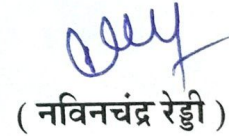 ( नविनचंद्र रेड्डी )